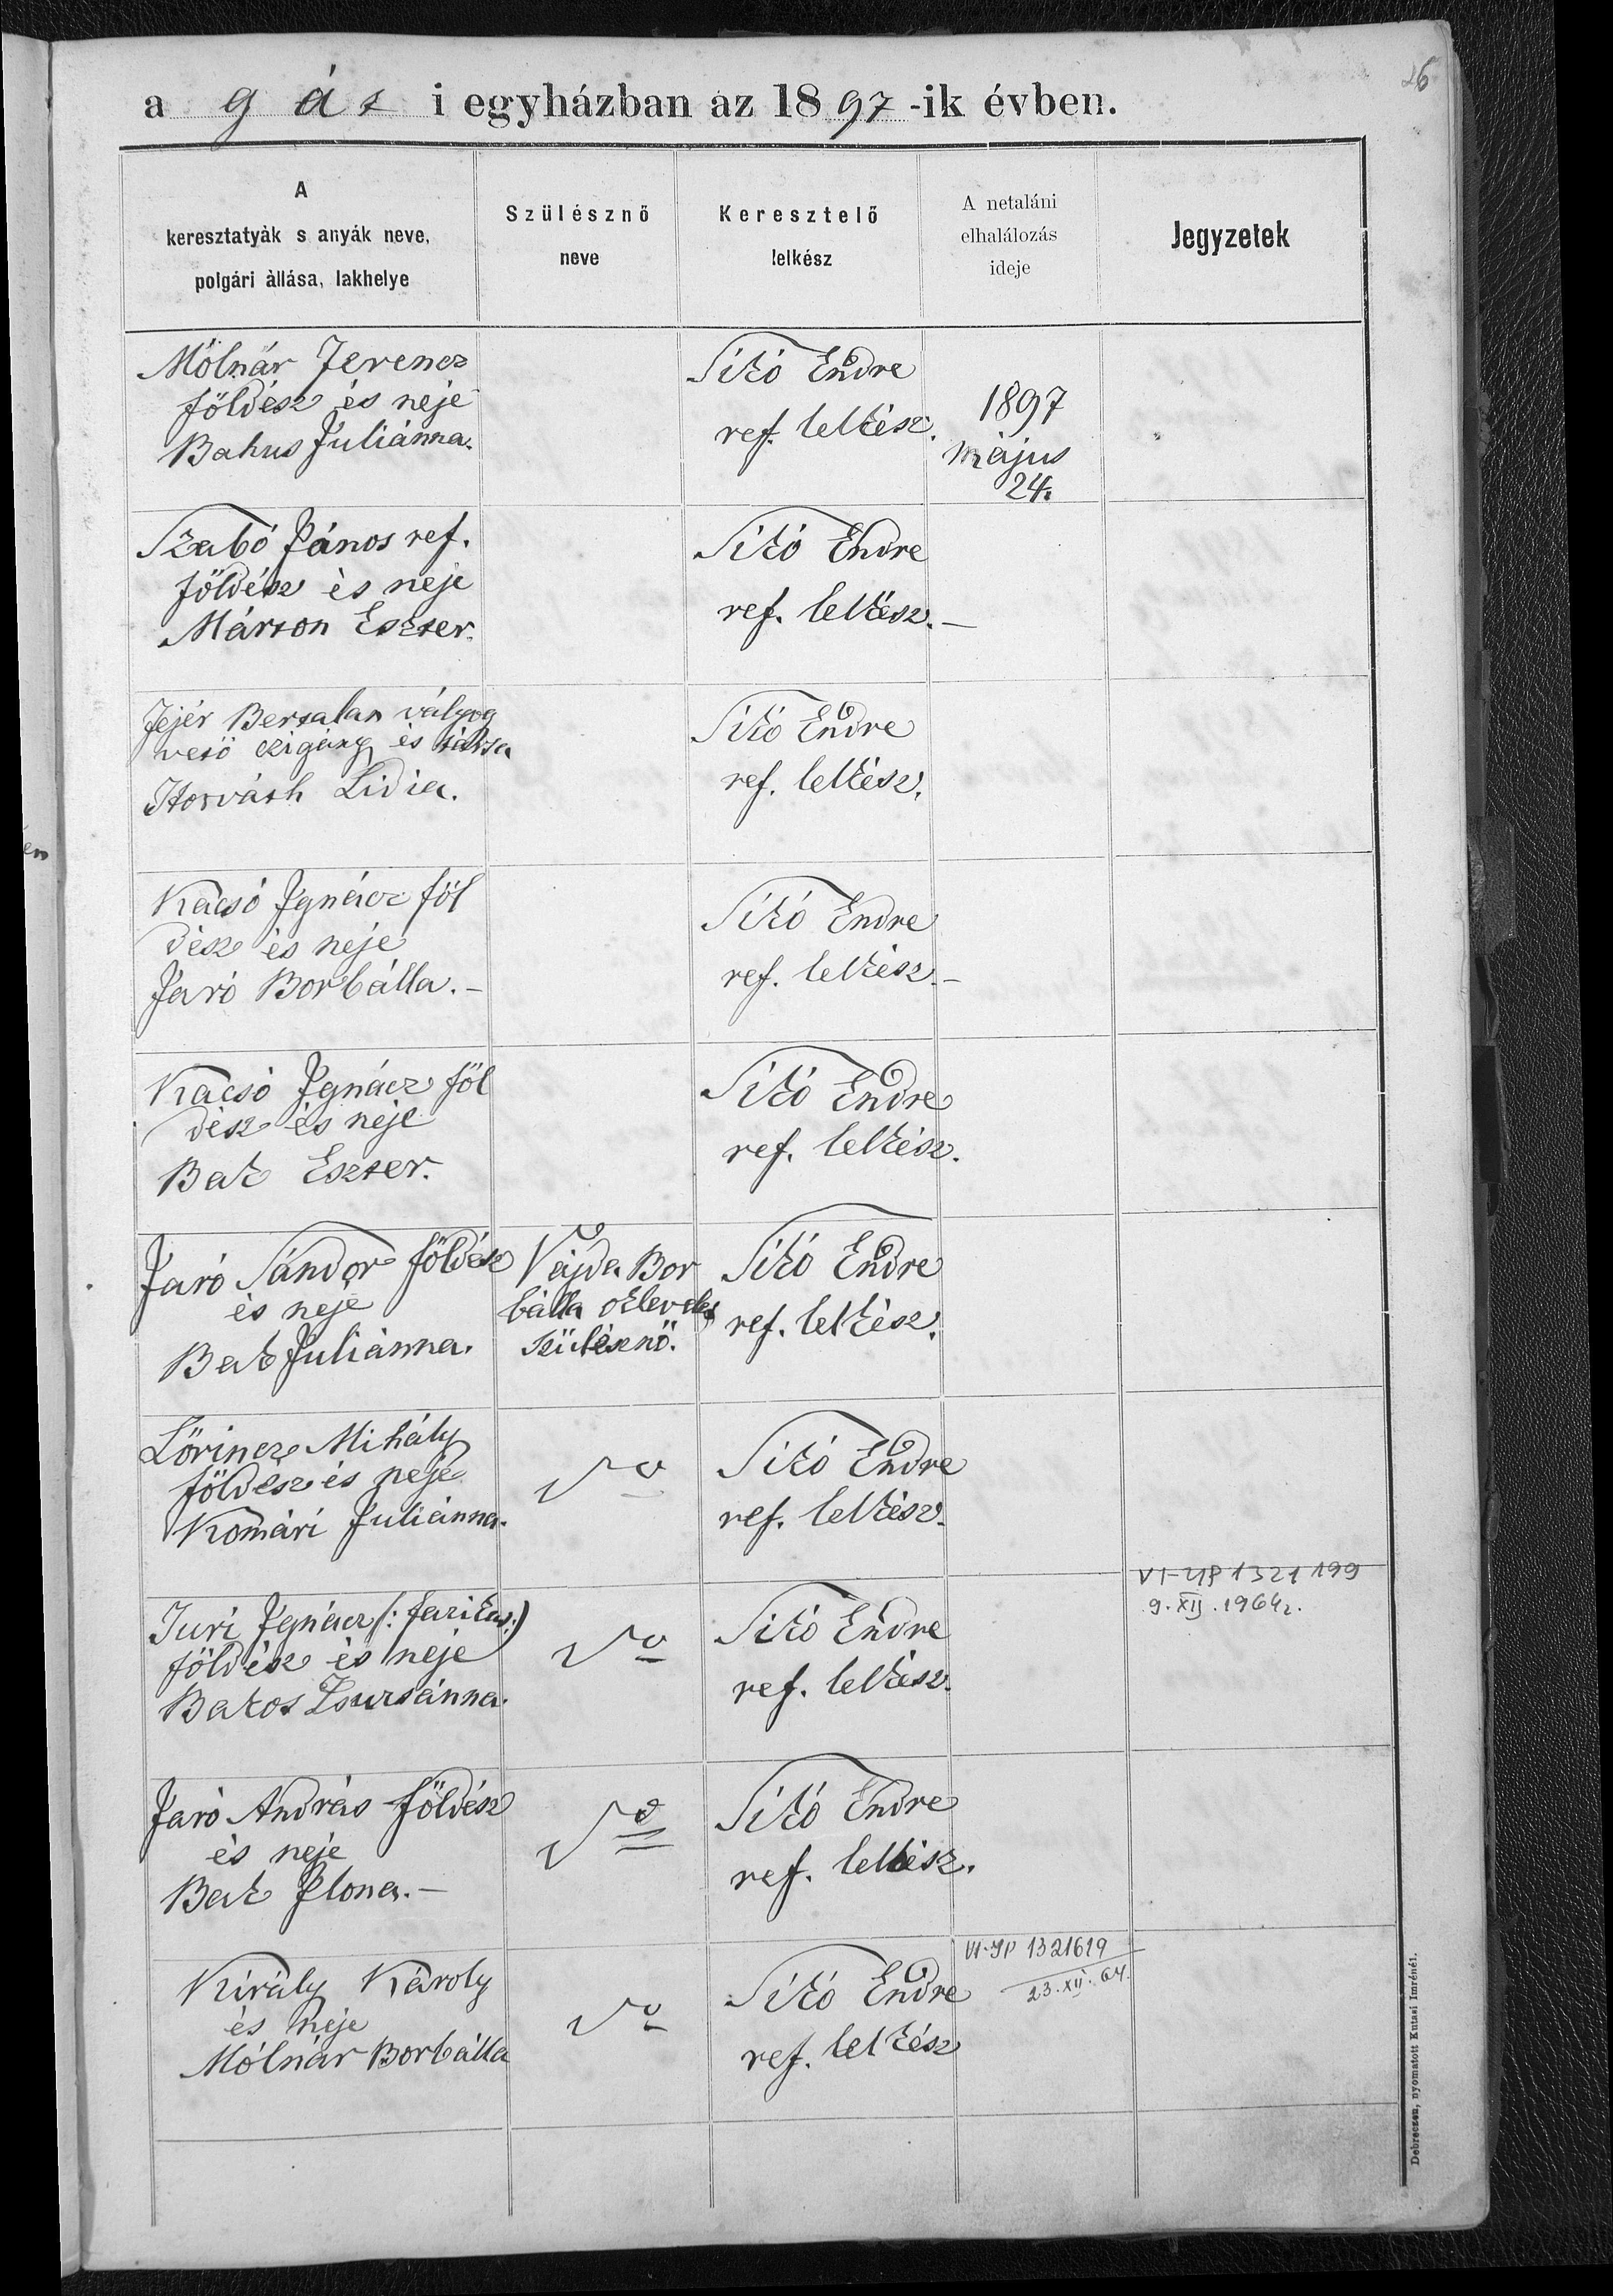 26
a gát i egyházban az 1897-ik évben.
A
keresztatyák s anyák neve,
polgári állása, lakhelye
Szülésznő
neve
Keresztelő
lelkész
A netaláni
elhalálozás
ideje
Jegyzetek
Mólnár Ferencz
földész és neje
Bahus Juliánna.
Sikó Endre
ref. lelkész.
1897
május
24.
Szabó János ref.
földész és neje
Márton Eszter.
Sikó Endre
ref. lelkész.—
Fejér Bertalan vályog
vető czigány és társa
Horváth Lidia.
Sikó Endre
ref. lelkész.
Kacsó Ignácz föl
dész és neje
Jaró Borbálla.—
Sikó Endre
ref. lelkész.—
Kacsó Ignácz föl
dész és neje
Bak Eszter.
Sikó Endre
ref. lelkész.
Jaró Sándor földész
és neje
Bak Juliánna.
Vajda Bor
bálla okleveles
szülésznő.
Sikó Endre
ref. lelkész.
Lőrincz Mihály
földész és neje
Komári Juliánna.
Sikó Endre
ref. lelkész.
VI-YP 1321199
9.XII.1964г.
Juri Ignácz
földész és neje
Bakos Zsuzsánna.
Sikó Endre
ref. lelkész.
Jaró András földész
és neje
Bak Ilona.—
Sikó Endre
ref. lelkész.
Király Károly
és neje
Mólnár Borbálla
Sikó Endre
ref. lelkész
VI-YP 1321619
23.XII.64.
Debreczen, nyomatott Kutasi Imrénél.